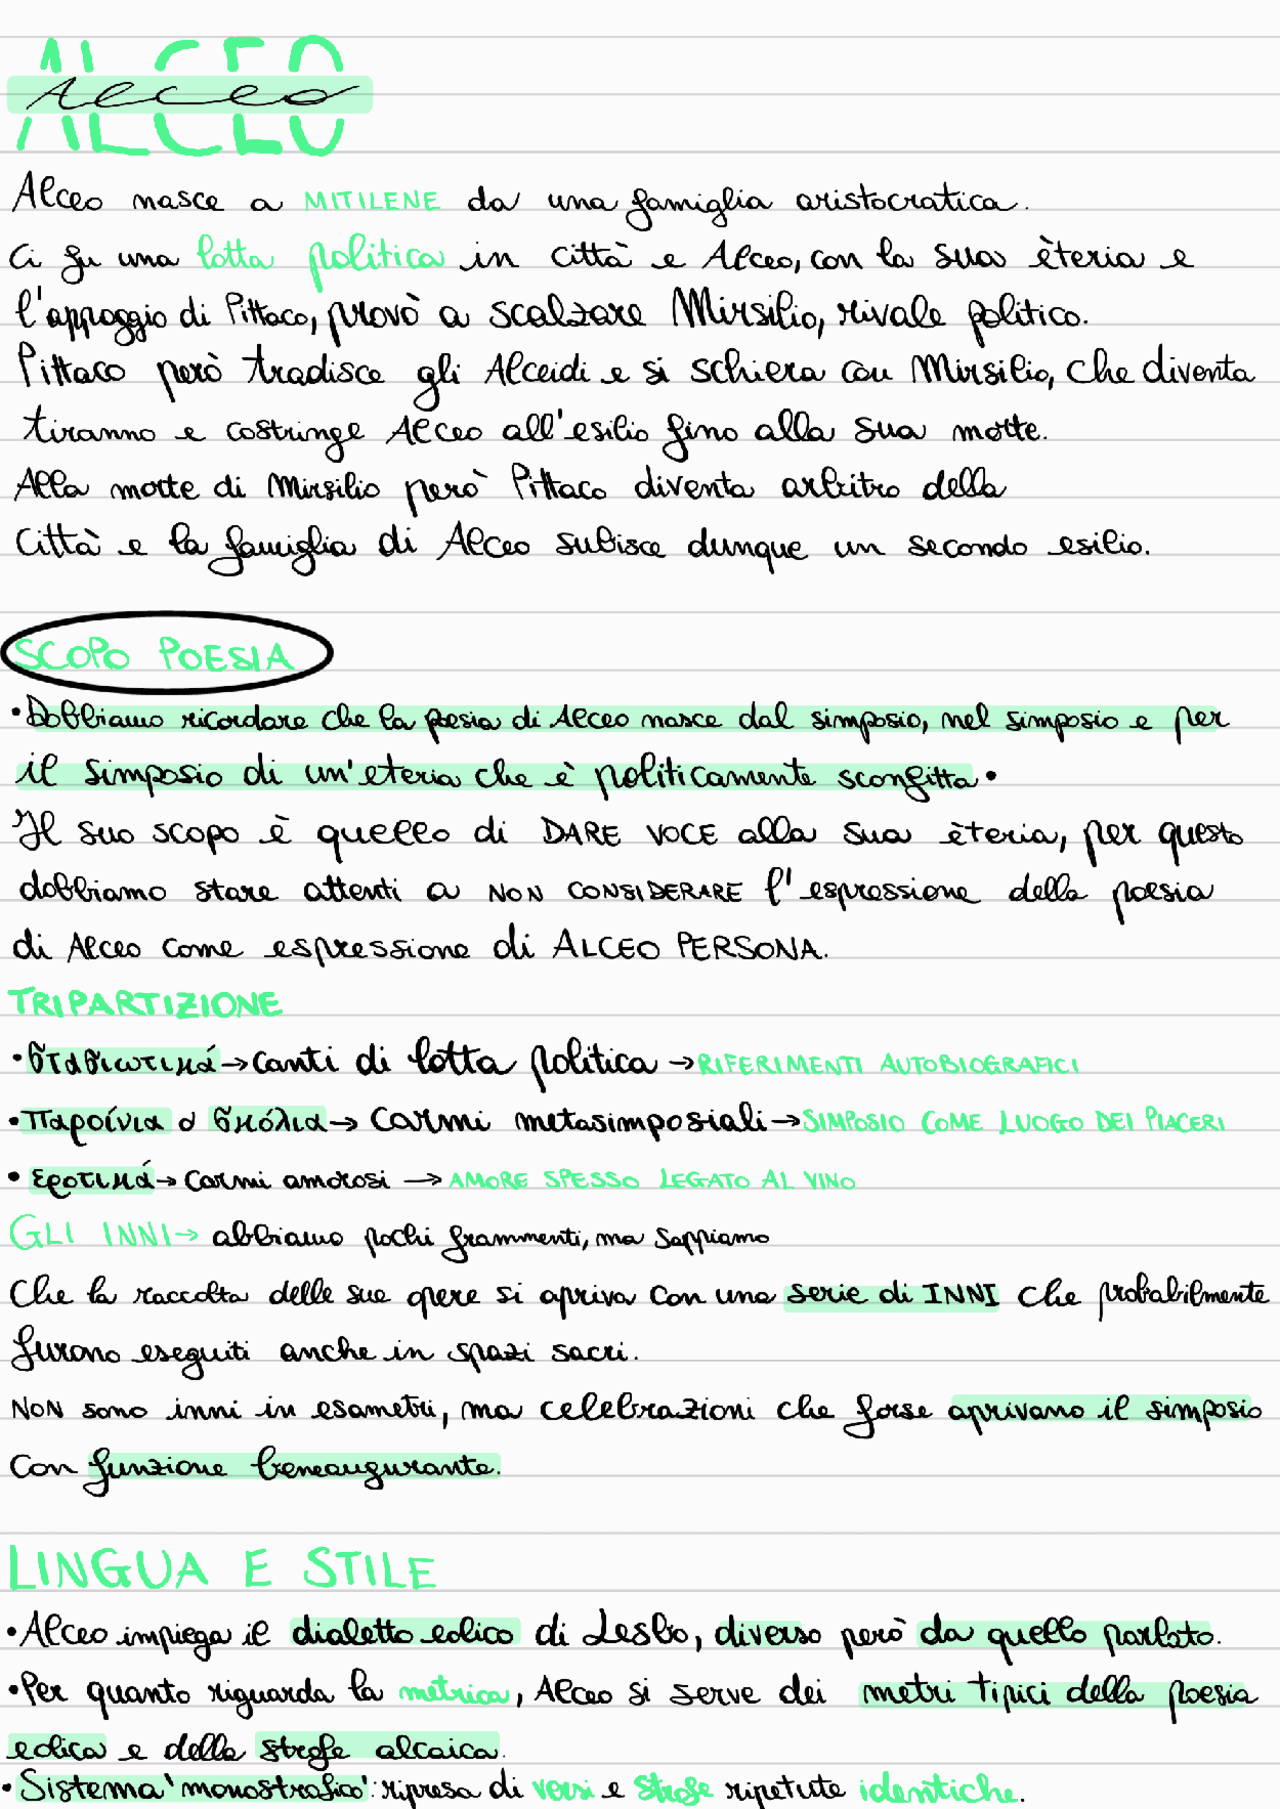 ALCEO
Alceo
Alceo nasce a MITILENE da una famiglia aristocratica.
Ci fu una lotta politica in città e Alceo, con la sua èteria e
l'appoggio di Pittaco, provò a scalzare Mirsilio, rivale politico.
Pittaco però tradisce gli Alceidi e si schiera con Mirsilio, che diventa
tiranno e costringe Alceo all'esilio fino alla sua morte.
Alla morte di Mirsilio però Pittaco diventa arbitro della
città e la famiglia di Alceo subisce dunque un secondo esilio.
SCOPO POESIA
•Dobbiamo ricordare che la poesia di Alceo nasce dal simposio, nel simposio e per
il simposio di un'eteria che è politicamente sconfitta•
Il suo scopo è quello di DARE VOCE alla sua èteria, per questo
dobbiamo stare attenti a NON CONSIDERARE l'espressione della poesia
di Alceo come espressione di ALCEO PERSONA.
TRIPARTIZIONE
•στασιωτικά→canti di lotta politica→RIFERIMENTI AUTOBIOGRAFICI
•παροίνια o σκόλια→ carmi metasimposiali→SIMPOSIO COME LUOGO DEI PIACERI
• εροτικά→ carmi amorosi → AMORE SPESSO LEGATO AL VINO
GLI INNI→ abbiamo pochi frammenti, ma sappiamo
che la raccolta delle sue opere si apriva con una serie di INNI che probabilmente
furono eseguiti anche in spazi sacri.
NON sono inni in esametri, ma celebrazioni che forse aprivano il simposio
con funzione beneaugurante.
LINGUA E STILE
•Alceo impiega il dialetto eolico di Lesbo, diverso però da quello parlato.
•Per quanto riguarda la metrica, Alceo si serve dei metri tipici della poesia
eolica e della strofe alcaica.
•Sistema 'monostrofico': ripresa di versi e strofe ripetute identiche.